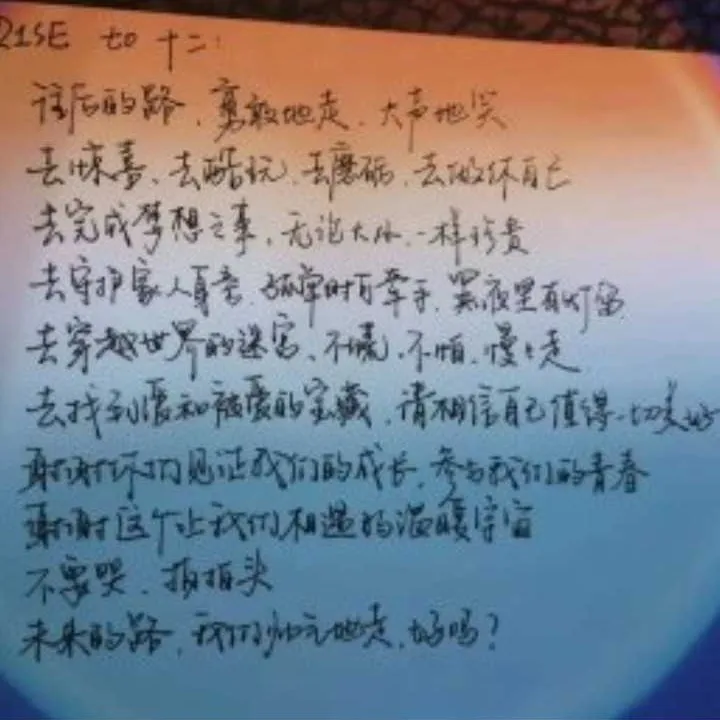 R1SE to 十二:
往后的路、勇敢地走、大声地哭
去惊喜、去酷玩、去磨砺、去做你自己
去完成梦想之事、无论大小、一样珍贵
去守护家人身旁、孤单时可牵手、黑夜里有灯留
去穿越世界的迷宫、不慌、不怕、慢慢走
去找到爱和被爱的宝藏、请相信自己值得一切美好
谢谢你们见证我们的成长、参与我们的青春
谢谢这个让我们相遇的温暖宇宙
不要哭、拍拍头
未来的路、我们地走、好吗？